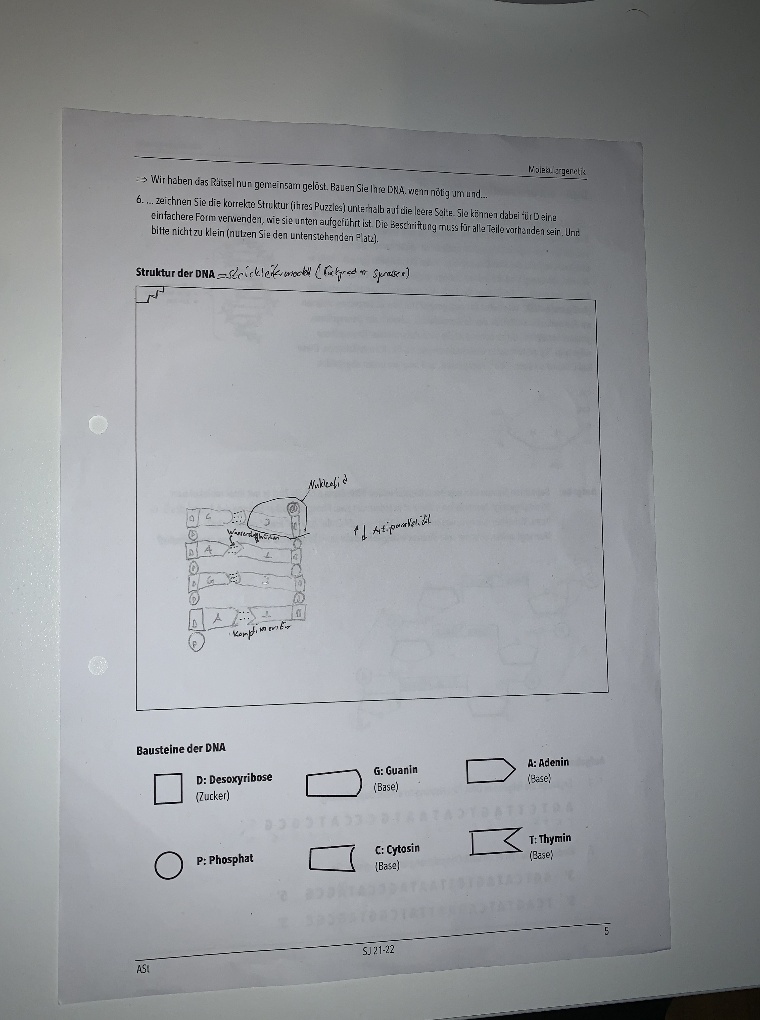 Molekulargenetik
-> Wir haben das Rätsel nun gemeinsam gelöst. Bauen Sie Ihre DNA, wenn nötig um und...
6. ... zeichnen Sie die korrekte Struktur (ihres Puzzles) unterhalb auf die leere Seite. Sie können dabei für D eine
einfachere Form verwenden, wie sie unten aufgeführt ist. Die Beschriftung muss für alle Teile vorhanden sein. Und
bitte nicht zu klein (nutzen Sie den untenstehenden Platz).
Struktur der DNA = Strickleitermodell
Nukleotid
D C
↑↓ Antiparallelität
D A
D G
D A
P
Bausteine der DNA
D: Desoxyribose
(Zucker)
G: Guanin
(Base)
A: Adenin
(Base)
P: Phosphat
C: Cytosin
(Base)
T: Thymin
(Base)
ASt
SJ 21-22
5